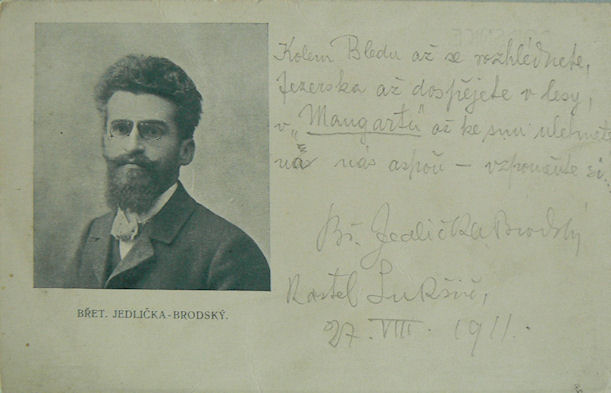 Kolem Bledu až se rozhlédnete,
Jezerska až dospějete v lesy,
v „Mangartu“ až ke snu ulehnete
na nás aspoň – vzpomeňte si.
Bř. Jedlička Brodský
Lukšič,
27. VIII. 1911.
BŘET. JEDLIČKA-BRODSKÝ.